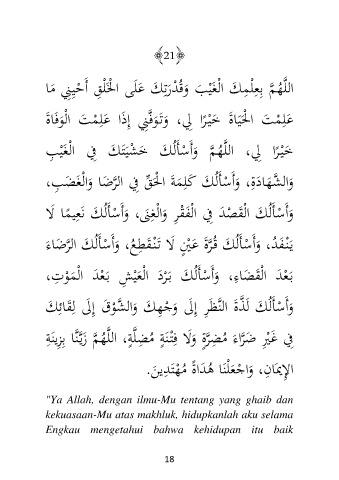 ﴾21﴿
اللَّهُمَّ بِعِلْمِكَ الْغَيْبَ وَقُدْرَتِكَ عَلَى الْخَلْقِ أَحْيِنِي مَا
عَلِمْتَ الْحَيَاةَ خَيْرًا لِي، وَتَوَفَّنِي إِذَا عَلِمْتَ الْوَفَاةَ
خَيْرًا لِي، اللَّهُمَّ وَأَسْأَلُكَ خَشْيَتَكَ فِي الْغَيْبِ
وَالشَّهَادَةِ، وَأَسْأَلُكَ كَلِمَةَ الْحَقِّ فِي الرِّضَا وَالْغَضَبِ،
وَأَسْأَلُكَ الْقَصْدَ فِي الْفَقْرِ وَالْغِنَى، وَأَسْأَلُكَ نَعِيمًا لَا
يَنْفَدُ، وَأَسْأَلُكَ قُرَّةَ عَيْنٍ لَا تَنْقَطِعُ، وَأَسْأَلُكَ الرِّضَاءَ
بَعْدَ الْقَضَاءِ، وَأَسْأَلُكَ بَرْدَ الْعَيْشِ بَعْدَ الْمَوْتِ،
وَأَسْأَلُكَ لَذَّةَ النَّظَرِ إِلَى وَجْهِكَ وَالشَّوْقَ إِلَى لِقَائِكَ
فِي غَيْرِ ضَرَّاءَ مُضِرَّةٍ وَلَا فِتْنَةٍ مُضِلَّةٍ، اللَّهُمَّ زَيِّنَّا بِزِينَةِ
الإِيمَانِ، وَاجْعَلْنَا هُدَاةً مُهْتَدِينَ.
"Ya Allah, dengan ilmu-Mu tentang yang ghaib dan
kekuasaan-Mu atas makhluk, hidupkanlah aku selama
Engkau mengetahui bahwa kehidupan itu baik
18